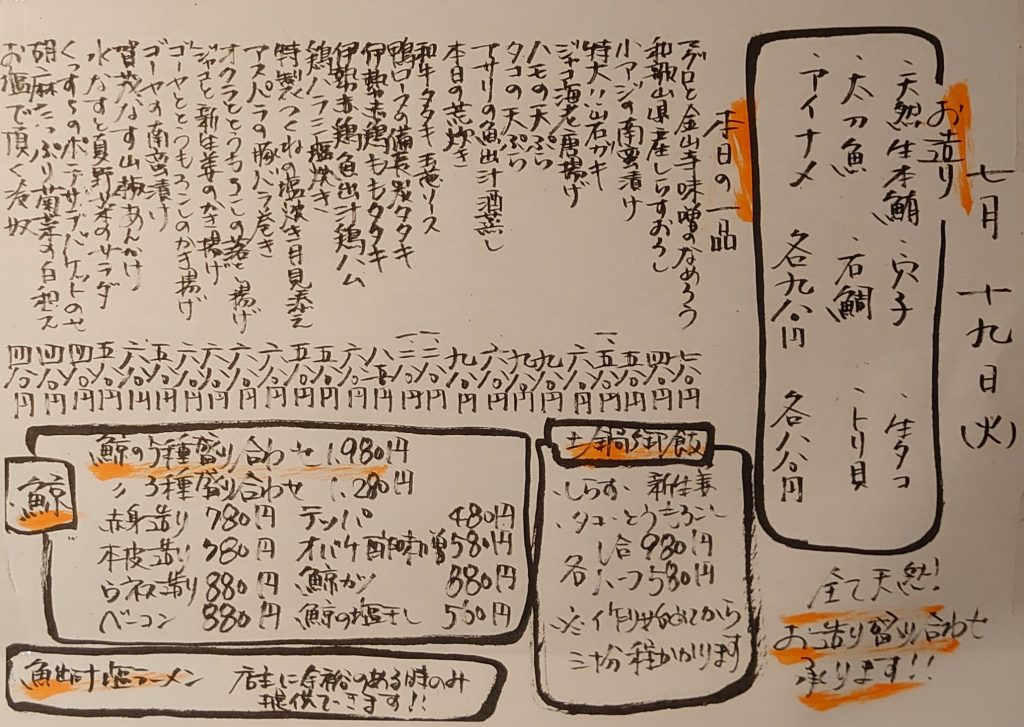 七月 十九日(火)
お造り
・天然生本鮪 ・穴子 ・生タコ
・太刀魚 ・石鯛 ・トリ貝
・アイナメ 各九八〇円 各八八〇円
全て天然!
お造り盛り合わせ
承ります!!
本日の一品
マグロと金山寺味噌のなめろう 七八〇円
和歌山県産しらすおろし 四八〇円
小アジの南蛮漬け 五八〇円
特大!!岩ガキ
ジャコ海老唐揚げ 六八〇円
ハモの天ぷら 九八〇円
タコの天ぷら 九八〇円
アサリの魚出汁酒蒸し 六八〇円
本日の荒炊き 九八〇円
和牛タタキ
鴨ロースの備長炭タタキ
伊勢赤鶏ももタタキ
伊勢赤鶏魚出汁鶏ハム 六八〇円
鶏ハラミ塩焼き 五八〇円
特製つくねの塩焼き月見添え 五八〇円
アスパラの豚バラ巻き 六八〇円
オクラととうもろこしの落とし揚げ 六八〇円
ジャコと新生姜のかき揚げ 六八〇円
ゴーヤととうもろこしのかき揚げ 六八〇円
ゴーヤの南蛮漬け 五八〇円
賀茂なす山椒あんかけ 六八〇円
水なすと夏野菜のサラダ 五八〇円
くっすぅのポテサラバケットのせ 四八〇円
胡麻たっぷり菊菜の白和え 四八〇円
お塩で頂く冷奴 四八〇円
土鍋御飯
・しらす・新生姜
・タコ・とうもろこし
一合 980円
各ハーフ 580円
※作り始めてから
三十分程かかります
鯨
鯨の5種盛り合わせ 1,980円
〃 3種盛り合わせ 1,280円
赤身造り 780円 テッパ 480円
本皮造り 780円 オバケ酢味噌 580円
ウネス造り 880円 鯨カツ 880円
ベーコン 880円 鯨の塩干し 550円
魚出汁塩ラーメン 店主に余裕のある時のみ
提供できます!!